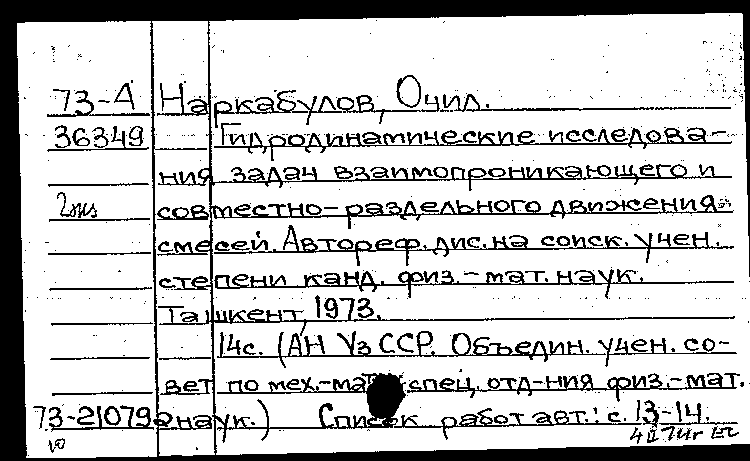 73-А Наркабулов, Очил.
36349 Гидродинамические исследова-
ния задач взаимопроникающего и
2 экз совместно-раздельного движения
смесей. Автореф. дис. на соиск. учен.
степени канд. физ.-мат. наук.
Ташкент, 1973.
14с. (АН УзССР. Объедин. учен. со-
вет по мех.-мат. спец. отд-ния физ.-мат.
73-21079 наук.) Список работ авт.: с. 13-14.